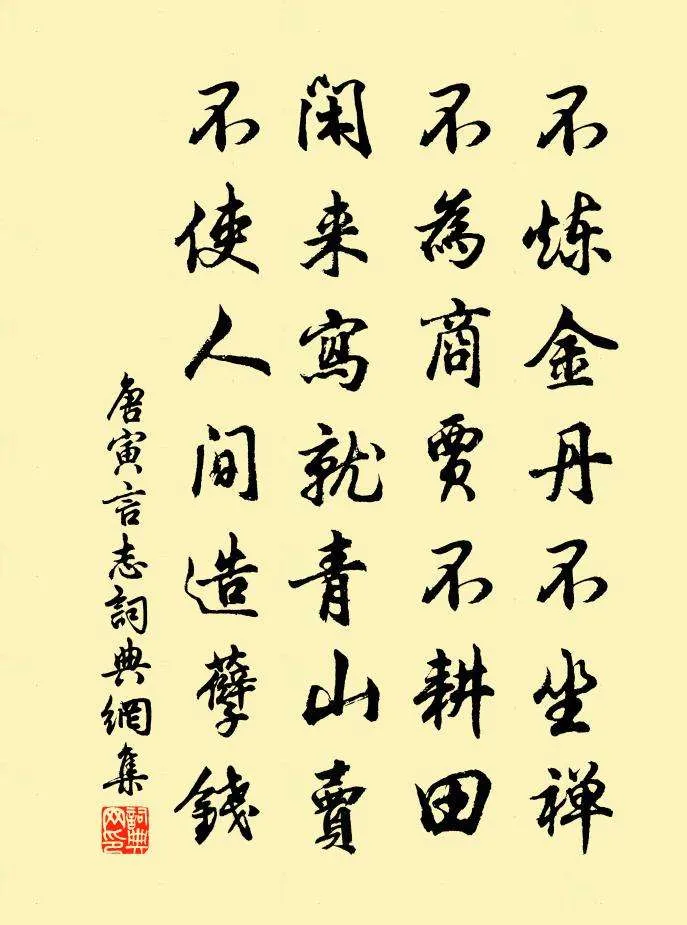 不炼金丹不坐禅
不為商賈不耕田
闲来寫就青山賣
不使人间造孽錢
唐寅言志詞典網集
詞典網印